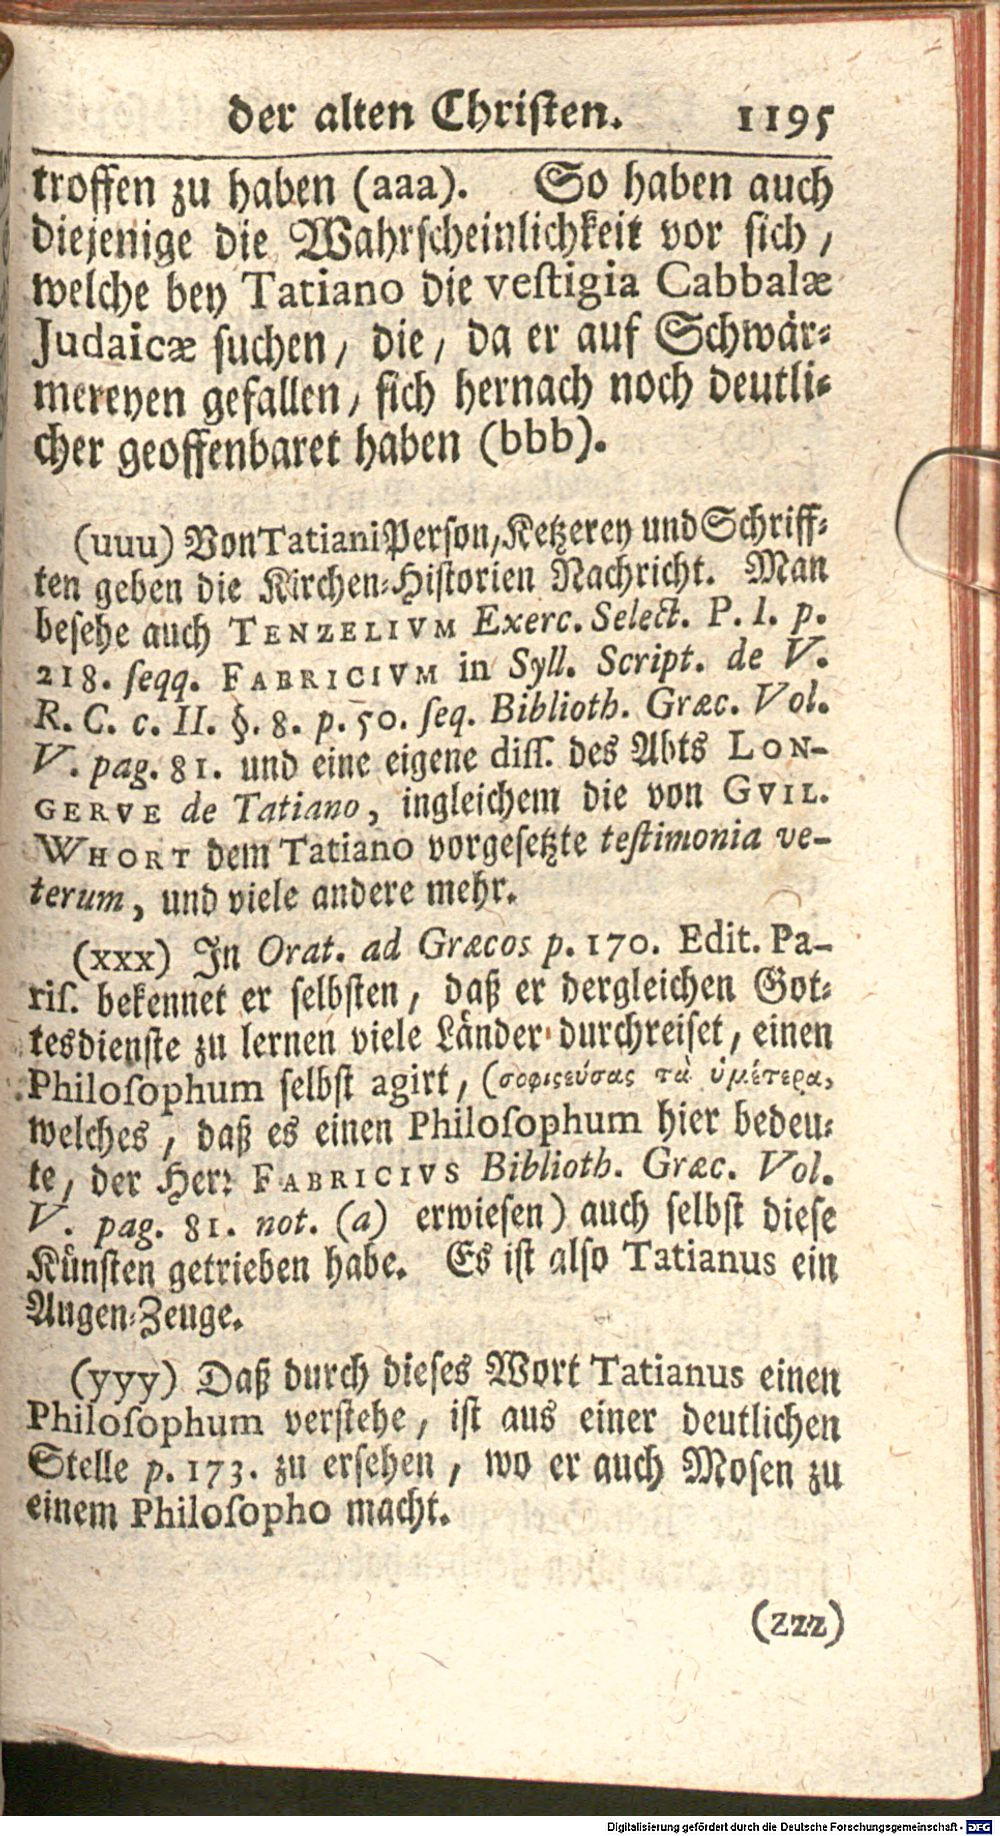 der alten Christen. 1195
troffen zu haben (aaa). So haben auch
diejenige die Wahrscheinlichkeit vor sich,
welche bey Tatiano die vestigia Cabbalæ
Judaicæ suchen, die, da er auf Schwär-
mereyen gefallen, sich hernach noch deutli-
cher geoffenbaret haben (bbb).
(uuu) Von Tatiani Person, Ketzerey und Schriff-
ten geben die Kirchen-Historien Nachricht. Man
besehe auch TENZELIVM Exerc. Select. P. I. p.
218. seqq. FABRICIVM in Syll. Script. de V.
R. C. c. II. §. 8. p. 50. seq. Biblioth. Græc. Vol.
V. pag. 81. und eine eigene diss. des Abts LON-
GERVE de Tatiano, ingleichem die von GVIL.
WHORT dem Tatiano vorgesetzte testimonia ve-
terum, und viele andere mehr.
(xxx) In Orat. ad Græcos p. 170. Edit. Pa-
ris. bekennet er selbsten, daß er dergleichen Got-
tesdienste zu lernen viele Länder durchreiset, einen
Philosophum selbst agirt, (σοφιϛεύσας τὰ ὑμέτερα,
welches, daß es einen Philosophum hier bedeu-
te, der Herr FABRICIVS Biblioth. Græc. Vol.
V. pag. 81. not. (a) erwiesen) auch selbst diese
Künsten getrieben habe. Es ist also Tatianus ein
Augen-Zeuge.
(yyy) Daß durch dieses Wort Tatianus einen
Philosophum verstehe, ist aus einer deutlichen
Stelle p. 173. zu ersehen, wo er auch Mosen zu
einem Philosopho macht.
(zzz)
Digitalisierung gefördert durch die Deutsche Forschungsgemeinschaft - DFG